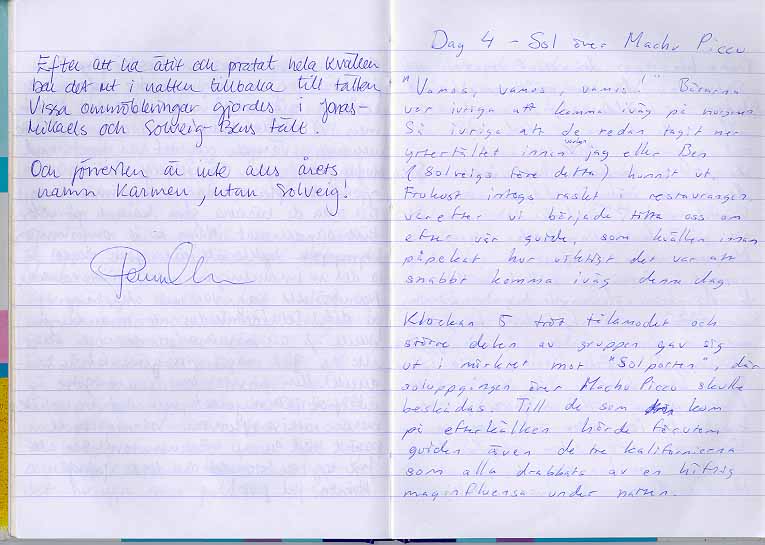 Efter att ha ätit och pratat hela kvällen
bar det ut i natten tillbaka till tälten
Vissa ommöbleringar gjordes i Jonas-
Mikaels och Solveig-Bens tält.
Och förresten är inte alls årets
namn Karmen, utan Solveig!
Dag 4 - Sol över Machu Piccu
"Vamos, vamos, vamos!" Bärarna
var ivriga att komma iväg på morgonen
Så ivriga att de redan tagit ner
yttertältet innan varken jag eller Ben
(Solveigs före detta) hunnit ut.
Frukost intogs raskt i restaurangen
varefter vi började titta oss om
efter vår guide, som kvällen innan
påpekat hur viktigt det var att
snabbt komma iväg denna dag.
Klockan 5 tröt tålamodet och
större delen av gruppen gav sig
ut i mörkret mot "Solporten", där
soluppgången över Machu Piccu skulle
beskådas. Till de som kom
på efterkälken hörde förutom
guiden även de tre kalifornierna
som alla drabbats av en häftig
maginfluensa under natten.